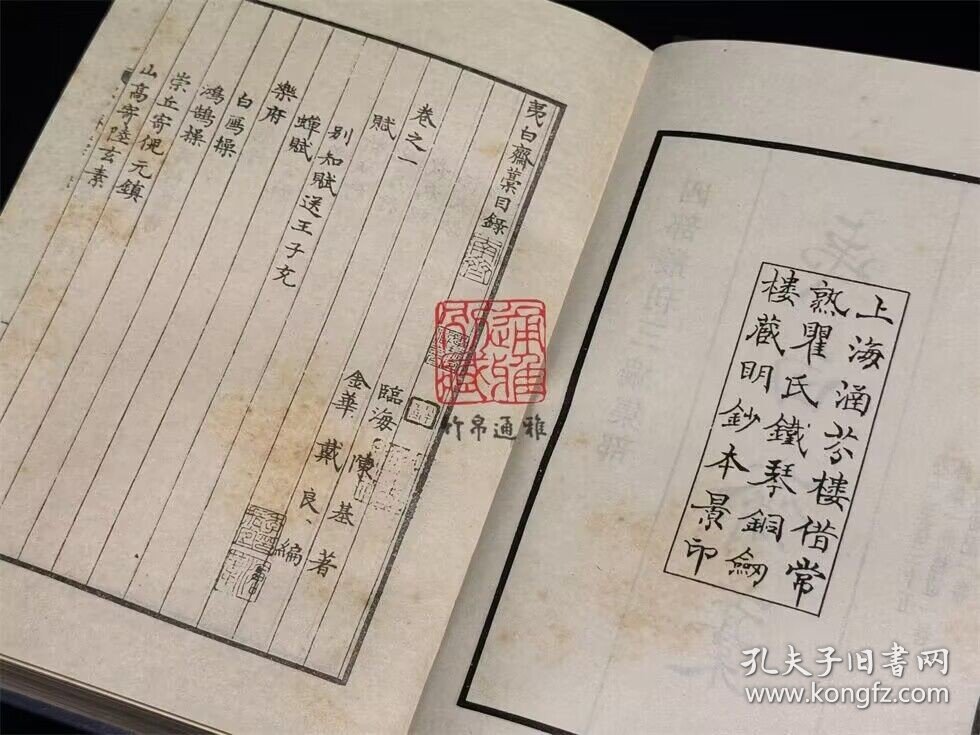 上海涵芬樓借常
熟瞿氏鐵琴銅劒
樓藏明鈔本景印
夷白齋藁目錄
臨海 陳基 著
金華 戴良 編
卷之一
賦
別知賦送王子充
蟬賦
樂府
白鴈操
鴻鵠操
崇丘寄倪元鎮
山高寄陸玄素
竹帛通雅
孔夫子旧书网
www.kongfz.com